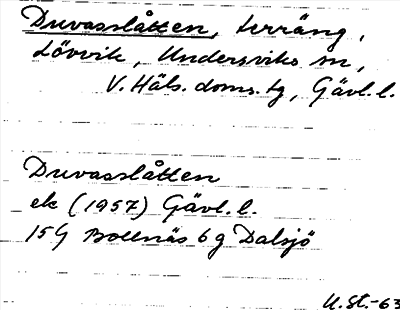 Duvasslåtten, terräng,
Lövvik, Undersviks sn,
V. Häls. doms. tg, Gävl. l.
Duvasslåtten
ek (1957) Gävl. l.
15G Bollnäs 6g Dalsjö
U. St. -63